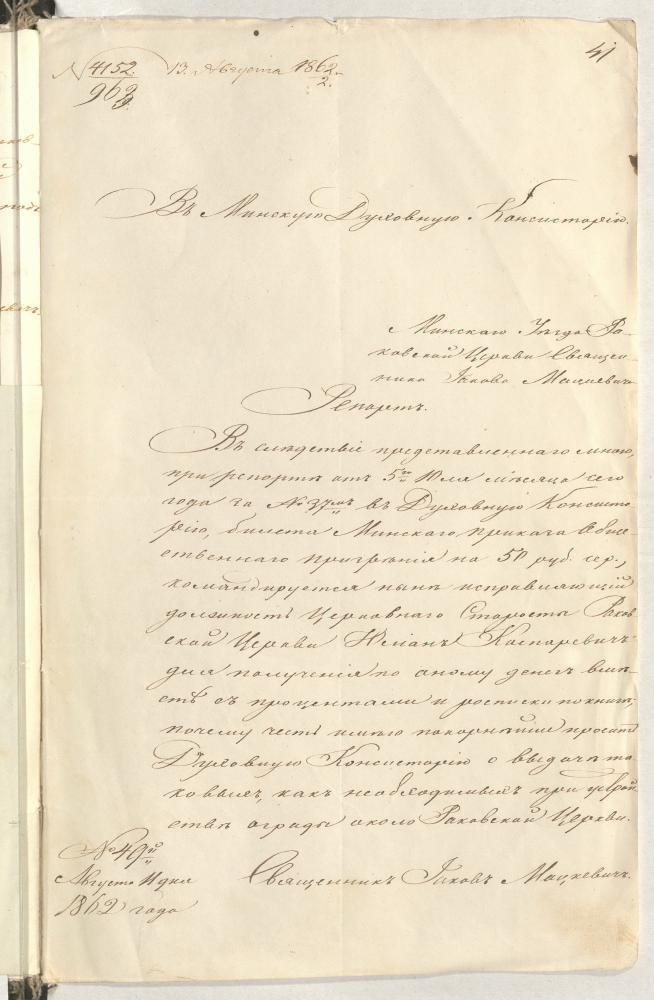 41
N 4152. 13. Августа 1862
963
Въ Минскую Духовную Консисторію.
Минскаго Уезда Ра-
ковской Церкви Священ-
ника Іакова Мацкевича
Репортъ.
Въ слѣдствіе представленнаго мною,
при репортѣ отъ 5го Юля мѣсяца сего
года за № 37мъ въ Духовную Консисто-
рію, билета Минскаго приказа Обще-
ственнаго Призрѣнія на 50 руб. сер.,
командируется нынѣ исправляющій
должность Церковнаго Старосты Раков-
ской Церкви Юліанъ Каспаревичъ
для полученія по оному денегъ вмѣ-
стѣ съ процентами и росписки по книгѣ;
почему честь имѣю покорнѣйше просить
Духовную Консисторію о выдачѣ та-
ковыхъ, какъ необходимыхъ при устрой-
ствѣ ограды около Раковской Церкви.
№ 49й
Августа 11 дня
1862 года
Священникъ Іаковъ Мацкевичъ.